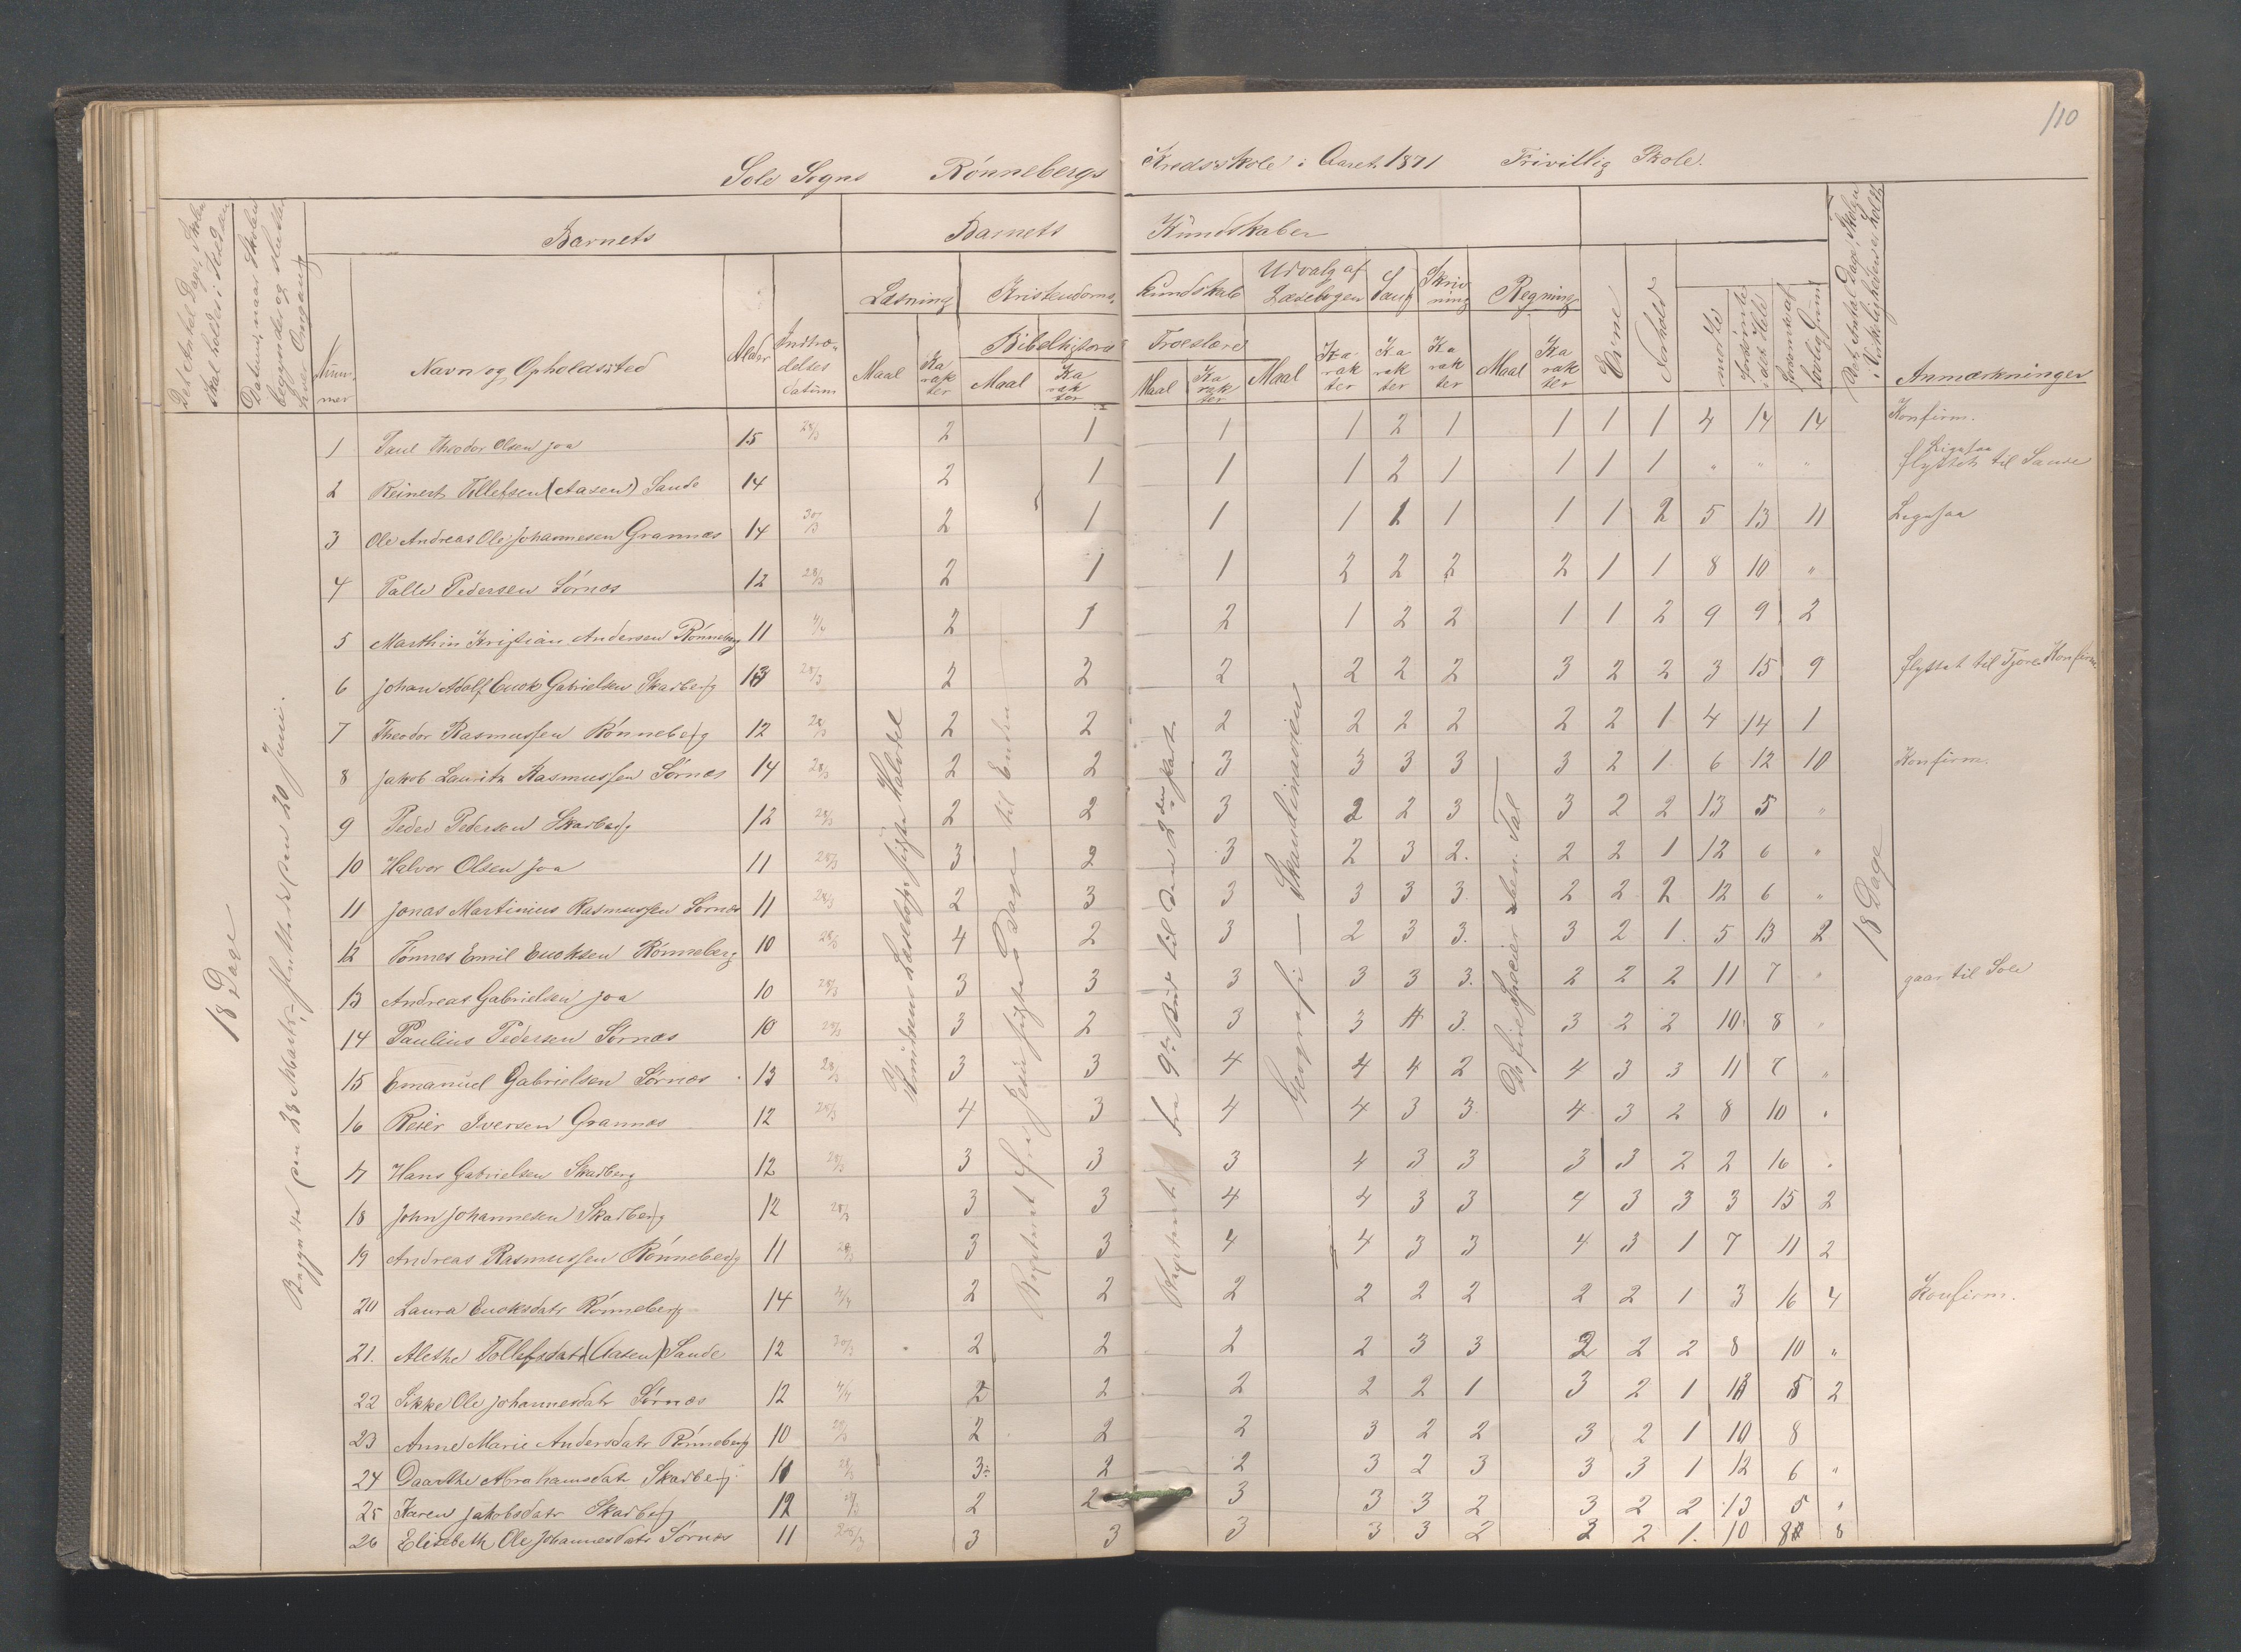 110
Sole Sogns Rønnebergs Kredsskole i Aaret 1871 Frivillig Skole.
Det Antal Dage, Skolen skal holdes i Kredsen
Datum, naar Skolen begynder og slutter hver Omgang
Barnets
Barnets Kundskaber
Det Antal Dage Skolen i Virkeligheden er holdt
Læsning Kristendoms- kundskab Udvalg af Læsebogen Sang Skriv-ning Regning Evne Forhold
Bibelhistorie Troeslære
Num-mer Navn og Opholdssted Alder Indtræ-delses Datum Maal Ka rak ter Maal Ka rak ter Maal Ka rak ter Maal Ka rak ter Ka rak ter Ka rak ter Maal Ka rak ter Anmærkninger
1 Paul Theodor Olsen Joa 15 28/3 2 1 1 1 2 1 1 1 1 4 14 14 Konfirm.
2 Reinert Tollefsen (Aasen) Sande 14 2 1 1 1 2 1 1 1 1 " " " Ligesaa flyttet til Sande
3 Ole Andreas Ole Johannesen Grannæs 14 30/3 2 1 1 1 1 1 1 2 5 13 11 Ligesaa
4 Palle Pedersen Sørnæs 12 28/3 2 1 1 2 2 2 2 1 1 8 10 "
5 Marthin Kristian Andersen Rønneberg 11 2 1 2 1 2 2 1 1 2 9 9 2
6 Johan Adolf Enok Gabrielsen Skadberg 13 28/3 2 2 2 2 2 2 3 2 2 3 15 9 flyttet til Tjora Konfirm.
7 Theodor Rasmussen Rønneberg 12 28/3 2 2 2 2 2 2 2 2 1 4 14 1
8 Jakob Lauritz Rasmussen Sørnæs 14 28/3 2 2 3 3 3 3 3 2 1 6 12 10 Konfirm.
9 Peder Pedersen Skadberg 12 28/3 2 2 3 2 2 3 3 2 2 13 5 "
10 Halvor Olsen Joa 11 28/3 3 2 3 2 3 2. 2 2 1 12 6 "
11 Jonas Martinius Rasmussen Sørnæs 11 28/3 2 3 3 3 3 3 2 2 2 12 6 "
12 Tønnes Emil Enoksen Rønneberg 10 28/3 4 2 3 2 3 3. 3 2 1 5 13 2
13 Andreas Gabrielsen Joa 10 28/3 3 3 3 3 3 3. 2 2 2 11 7 " gaar til Sole
14 Paulius Pedersen Sørnæs 10 28/3 3 2 3 3 4 3. 3 2 2 10 8 "
15 Emanuel Gabrielsen Sørnæs 13 28/3 3 3 4 4 4 2 4 3 3 11 7 "
16 Reier Iversen Grannæs 12 28/3 4 3 4 4 3 3 4 3 2 8 10 "
17 Hans Gabrielsen Skadberg 12 28/3 3 3 3 4 3 3 3 3 2 2 16 "
18 John Johannesen Skadberg 12 28/3 3 3 4 4 3 3 4 3 3 3 15 2
19 Andreas Rasmussen Rønneberg 11 28/3 3 3 4 4 3 3 4 3 1 7 11 2
20 Laura Enoksdatr Rønneberg 14 4/4 2 2 2 2 2 2 2 2 1 3 16 4 Konfirm.
21. Alethe Tollefsdatr (Aasen) Sande 12 30/3 2 2 2 2 3 3 2 2 2 8 10 "
22 Sikke Ole Johannesdatr Sørnæs 12 4/4 2 2 2 2 2 1 3 2 1 13 5 2
23 Anne Marie Andersdatr Rønneberg 10 28/3 2 2 2 3 2 2 3 2 1 10 8
24 Daarthe Abrahamsdatr Skadberg 11 28/3 3 2 2 3 2 3 3 3 1 12 6 "
25 Karen Jakobsdatr Skadberg 12 28/3 2 2 3 3 3 2 3 2 2 13 5 "
26 Elisebeth Ole Johannesdatr Sørnæs 11 3 3 3 3 3 2 2 2 1. 10 8 8
18 Dage
Begyndte den 28 Marts, sluttede den 20 Juni.
Knudsens Læsebogs sidste Halvdel
Repetert fra Jesu sidste Dage til Enden
Repetert fra 9de Bud til den 2den Part
Geografi — Skandinavien
De fire Speeier
18 Dage